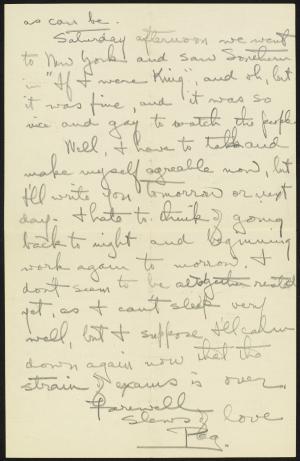 as can be.
Saturday afternoon we went
to New York and saw Sothern
in "If I were King", and oh, but
it was fine, and it was so
nice and gay to watch the people.
Well, I have to talk and
make myself agreeable now, but
I'll write you tomorrow or next
day. I hate to think of going
back to night and beginning
work again to morrow. I
don't seem to be altogether rested
yet, as I can't sleep very
well, but I suppose I'll calm
down again now that the
strain of exams is over.
Farewell
Slews of love
Peg.